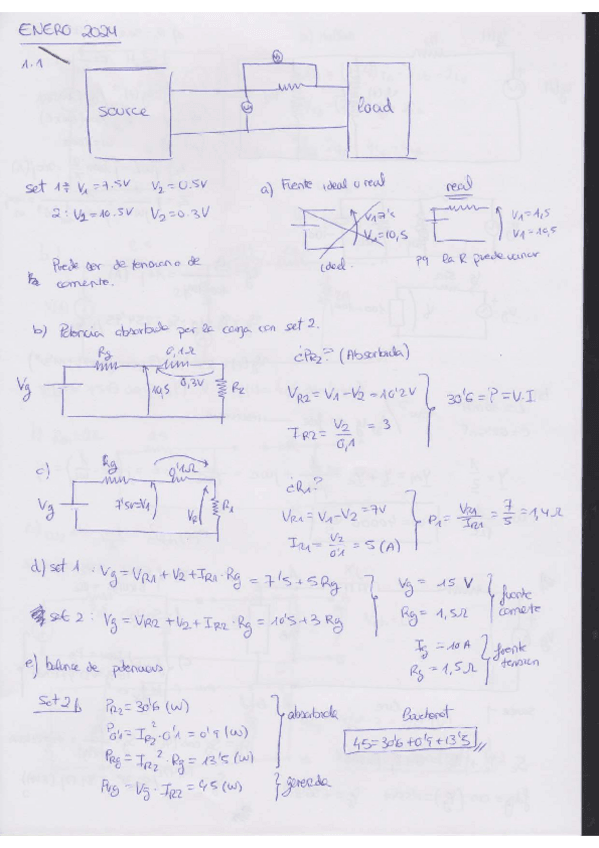 ENERO 2024
1.1
source
load
set 1: V1 = 7.5V V2 = 0.5V
2: V1 = 10.5V V2 = 0.3V
a) Fuente ideal o real
V1 7'5
V1 = 10,5
ideal.
real
V1 = 10,5
pq la R puede variar
Puede ser de tensión o de
corriente.
b) Potencia absorbida por la carga con set 2.
Rg 0,1Ω
Vg
10,5 0,3V R2
¿PR2? (Absorbida)
VR2 = V1 - V2 = 10'2V
IR2 = V2/0,1 = 3
30'6 = P = V·I
c)
Rg 0'1Ω
Vg
7'5V=V1 V2 R1
¿R1?
VR1 = V1 - V2 = 7V
IR1 = V2/0'1 = 5 (A)
R1 = VR1/IR1 = 7/5 = 1,4Ω
d) set 1: Vg = VR1 + V2 + IR1·Rg = 7'5 + 5Rg
set 2: Vg = VR2 + V2 + IR2·Rg = 10'5 + 3Rg
Vg = 15 V
Rg = 1,5Ω
fuente
corriente
Ig = 10A
Rg = 1.5Ω
fuente
tension
e) balance de potencias.
Set 2
PR2 = 30'6 (W)
P0'1 = IR2²·0'1 = 0'9 (W)
PRg = IR2²·Rg = 13'5 (W)
absorbida
PVg = Vg·IR2 = 45 (W)
generada
45 = 30'6 + 0'9 + 13'5